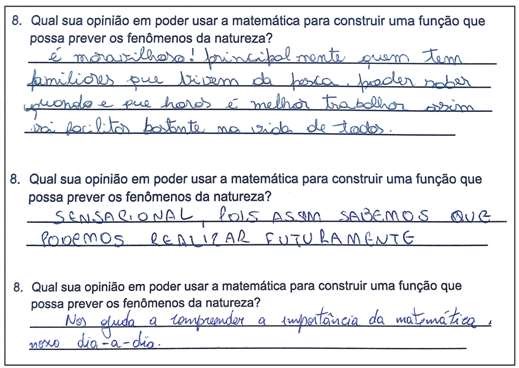 8. Qual sua opinião em poder usar a matemática para construir uma função que
possa prever os fenômenos da natureza?
é maravilhoso! principalmente quem tem
familiares que vivem da pesca, poder saber
quando e que horas é melhor trabalhar assim
vai facilitar bastante na vida de todos.
8. Qual sua opinião em poder usar a matemática para construir uma função que
possa prever os fenômenos da natureza?
SENSACIONAL, POIS ASSIM SABEMOS QUE
PODEMOS REALIZAR FUTURAMENTE
8. Qual sua opinião em poder usar a matemática para construir uma função que
possa prever os fenômenos da natureza?
Nos ajuda a compreender a importância da matemática,
nosso dia-a-dia.